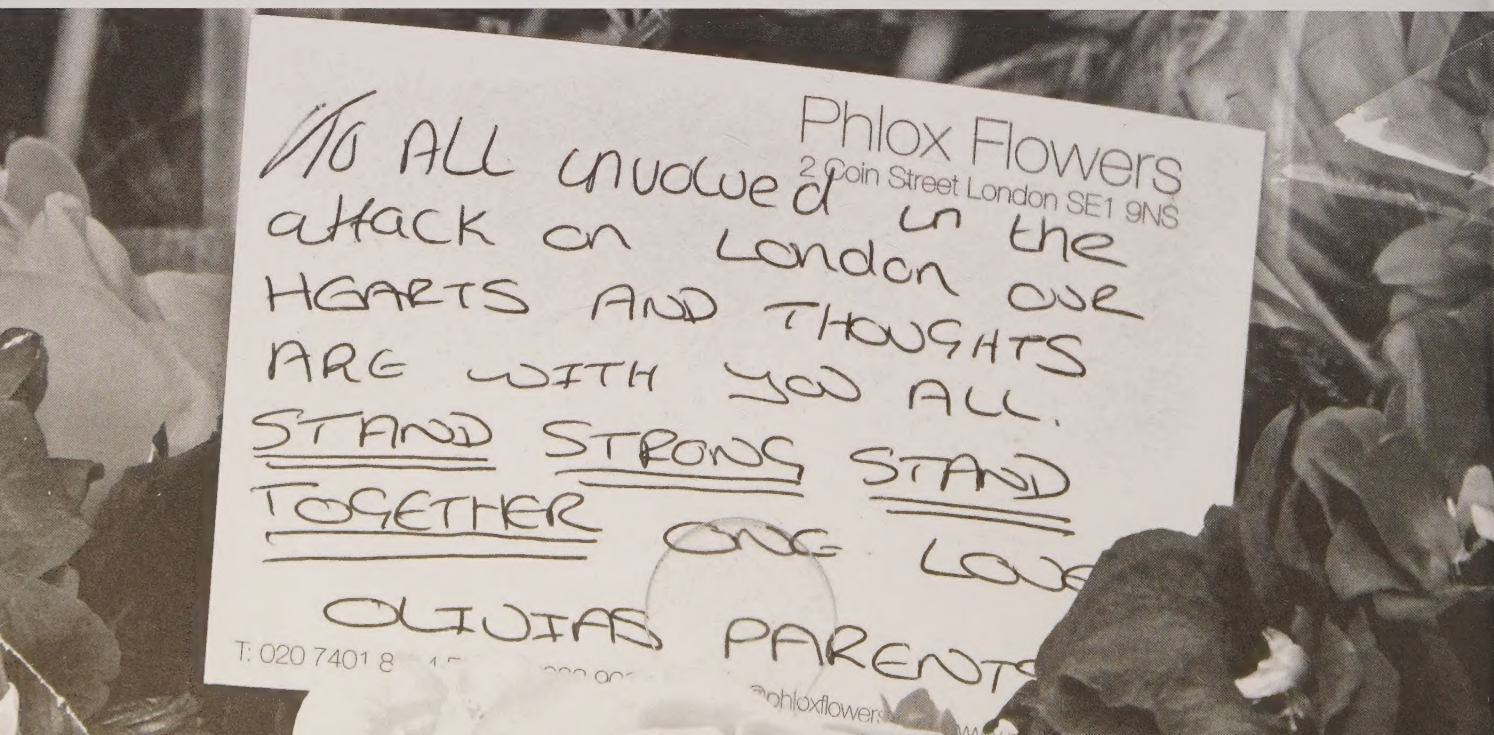 Phlox Flowers
2 Coin Street London SE1 9NS
To ALL involved in the
attack on London OUR
HEARTS AND THOUGHTS
ARE WITH YOU ALL.
STAND STRONG STAND
TOGETHER ONE LOVE
OLIVIAS PARENTS
T: 020 7401 8
@phloxflowers